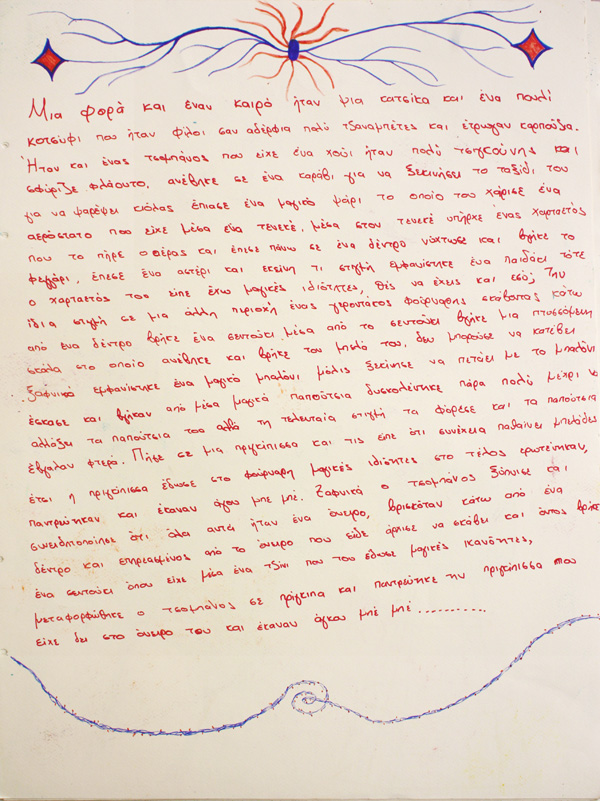 Μια φορά και έναν καιρό ήταν μια κατσίκα και ένα πουλί
κοτσύφι που ήταν φίλοι σαν αδέρφια πολύ τζαναμπέτες και έτρωγαν καρπούζα.
Ήταν και ένας τσομπάνος που είχε ένα χούι ήταν πολύ τσιγκούνης και
σφύριζε φλάουτο, ανέβηκε σε ένα καράβι για να ξεκινήσει το ταξίδι του
για να ψαρέψει κιόλας έπιασε ένα μαγικό ψάρι το οποίο του χάρισε ένα
αερόστατο που είχε μέσα ένα τενεκέ, μέσα στον τενεκέ υπήρχε ένας χαρταετός
που το πήρε ο αέρας και έπεσε πάνω σε ένα δέντρο νύχτωσε και βγήκε το
φεγγάρι, έπεσε ένα αστέρι και εκείνη τι στιγμή εμφανίστηκε ένα παιδάκι τότε
ο χαρταετός του είπε έχω μαγικές ιδιότητες, θες να έχεις και εσύ; Την
ίδια στιγμή σε μια άλλη περιοχή ένας γεροντάκος φούρναρης σκάβοντας κάτω
από ένα δέντρο βρήκε ένα σεντούκι μέσα από το σεντούκι βγήκε μια πτυσσόμενη
σκάλα στο οποίο ανέβηκε και βρήκε τον μπελά του, δεν μπορούσε να κατέβει
ξαφνικά εμφανίστηκε ένα μαγικό μπαλόνι μόλις ξεκίνησε να πετάει με το μπαλόνι
έσκασε και βγήκαν από μέσα μαγικά παπούτσια δυσκολεύτηκε πάρα πολύ μέχρι να
αλλάξει τα παπούτσια του αλλά τη τελευταία στιγμή τα φόρεσε και τα παπούτσια
έβγαλαν φτερά. Πήγε σε μια πριγκίπισσα και τις είπε ότι συνέχεια παθαίνει μπελάδες
έτσι η πριγκίπισσα έδωσε στο φούρναρη μαγικές ιδιότητες στο τέλος ερωτεύτηκαν,
παντρεύτηκαν και έκαναν όγκου μπε μπέ. Ξαφνικά ο τσομπάνος ξύπνησε και
συνειδητοποίησε ότι όλα αυτά ήταν ένα όνειρο, βρισκόταν κάτω από ένα
δέντρο και επηρεασμένος από το όνειρο που είδε άρχισε να σκάβει και όντως βρήκε
ένα σεντούκι όπου είχε μέσα ένα τζίνι που του έδωσε μαγικές ικανότητες,
μεταμορφώθηκε ο τσομπάνος σε πρίγκιπα και παντρεύτηκε την πριγκίπισσα που
είχε δει στο όνειρο του και έκαναν όγκου μπέ μπέ ............